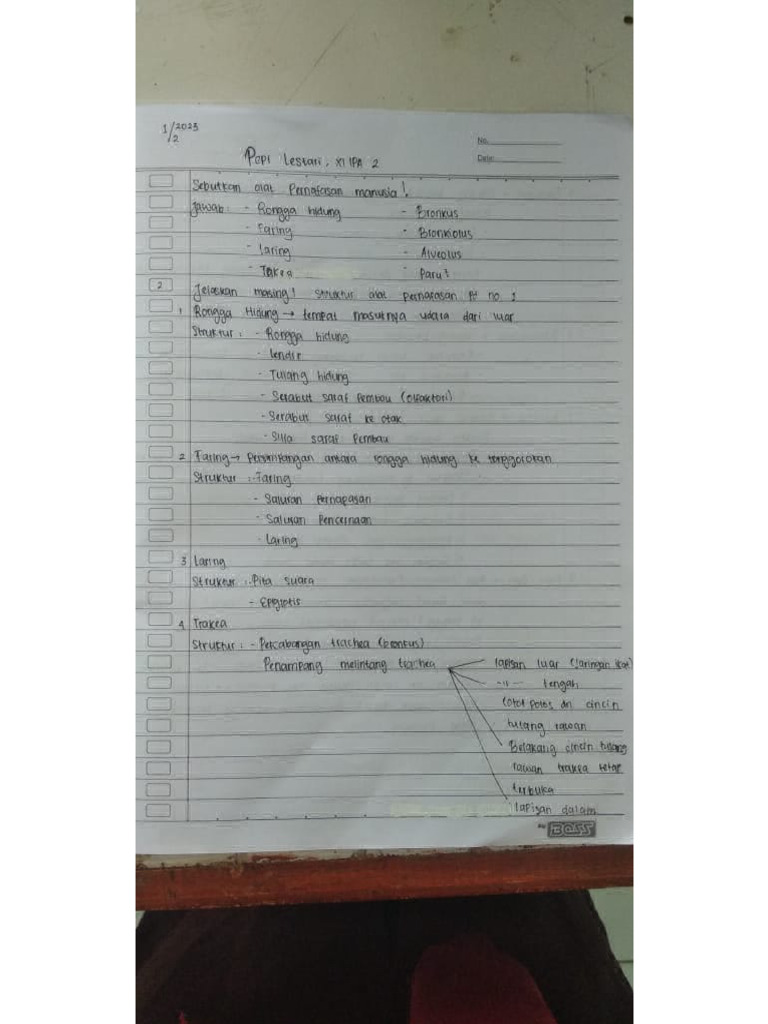 1/2 2023
No.
Popi Lestari, XI IPA 2
Date:
Sebutkan alat Pernafasan manusia!
Jawab: - Rongga hidung - Bronkus
- Faring - Bronkiolus
- Laring - Alveolus
- Takea - Paru²
2 Jelaskan masing² struktur alat pernafasan Pd no. 1
1 Rongga Hidung → tempat masuknya udara dari luar
Struktur: - Rongga hidung
- Lendir
- Tulang hidung
- Serabut saraf Pembau (olfaktori)
- Serabut saraf ke otak
- Silia saraf Pembau
2 Faring → Persimpangan antara rongga hidung ke tenggorokan
Struktur: - Faring
- Saluran Pernapasan
- Saluran Pencernaan
- Laring
3 Laring
Struktur: - Pita suara
- Epiglotis
4 Trakea
Struktur: - Percabangan trachea (bronkus)
Penampang melintang trachea lapisan luar (Jaringan ikat)
-11- tengah
(otot polos dn cincin
tulang rawan
Belakang cincin tulang
rawan trakea tetap
terbuka
lapisan dalam
BOSS